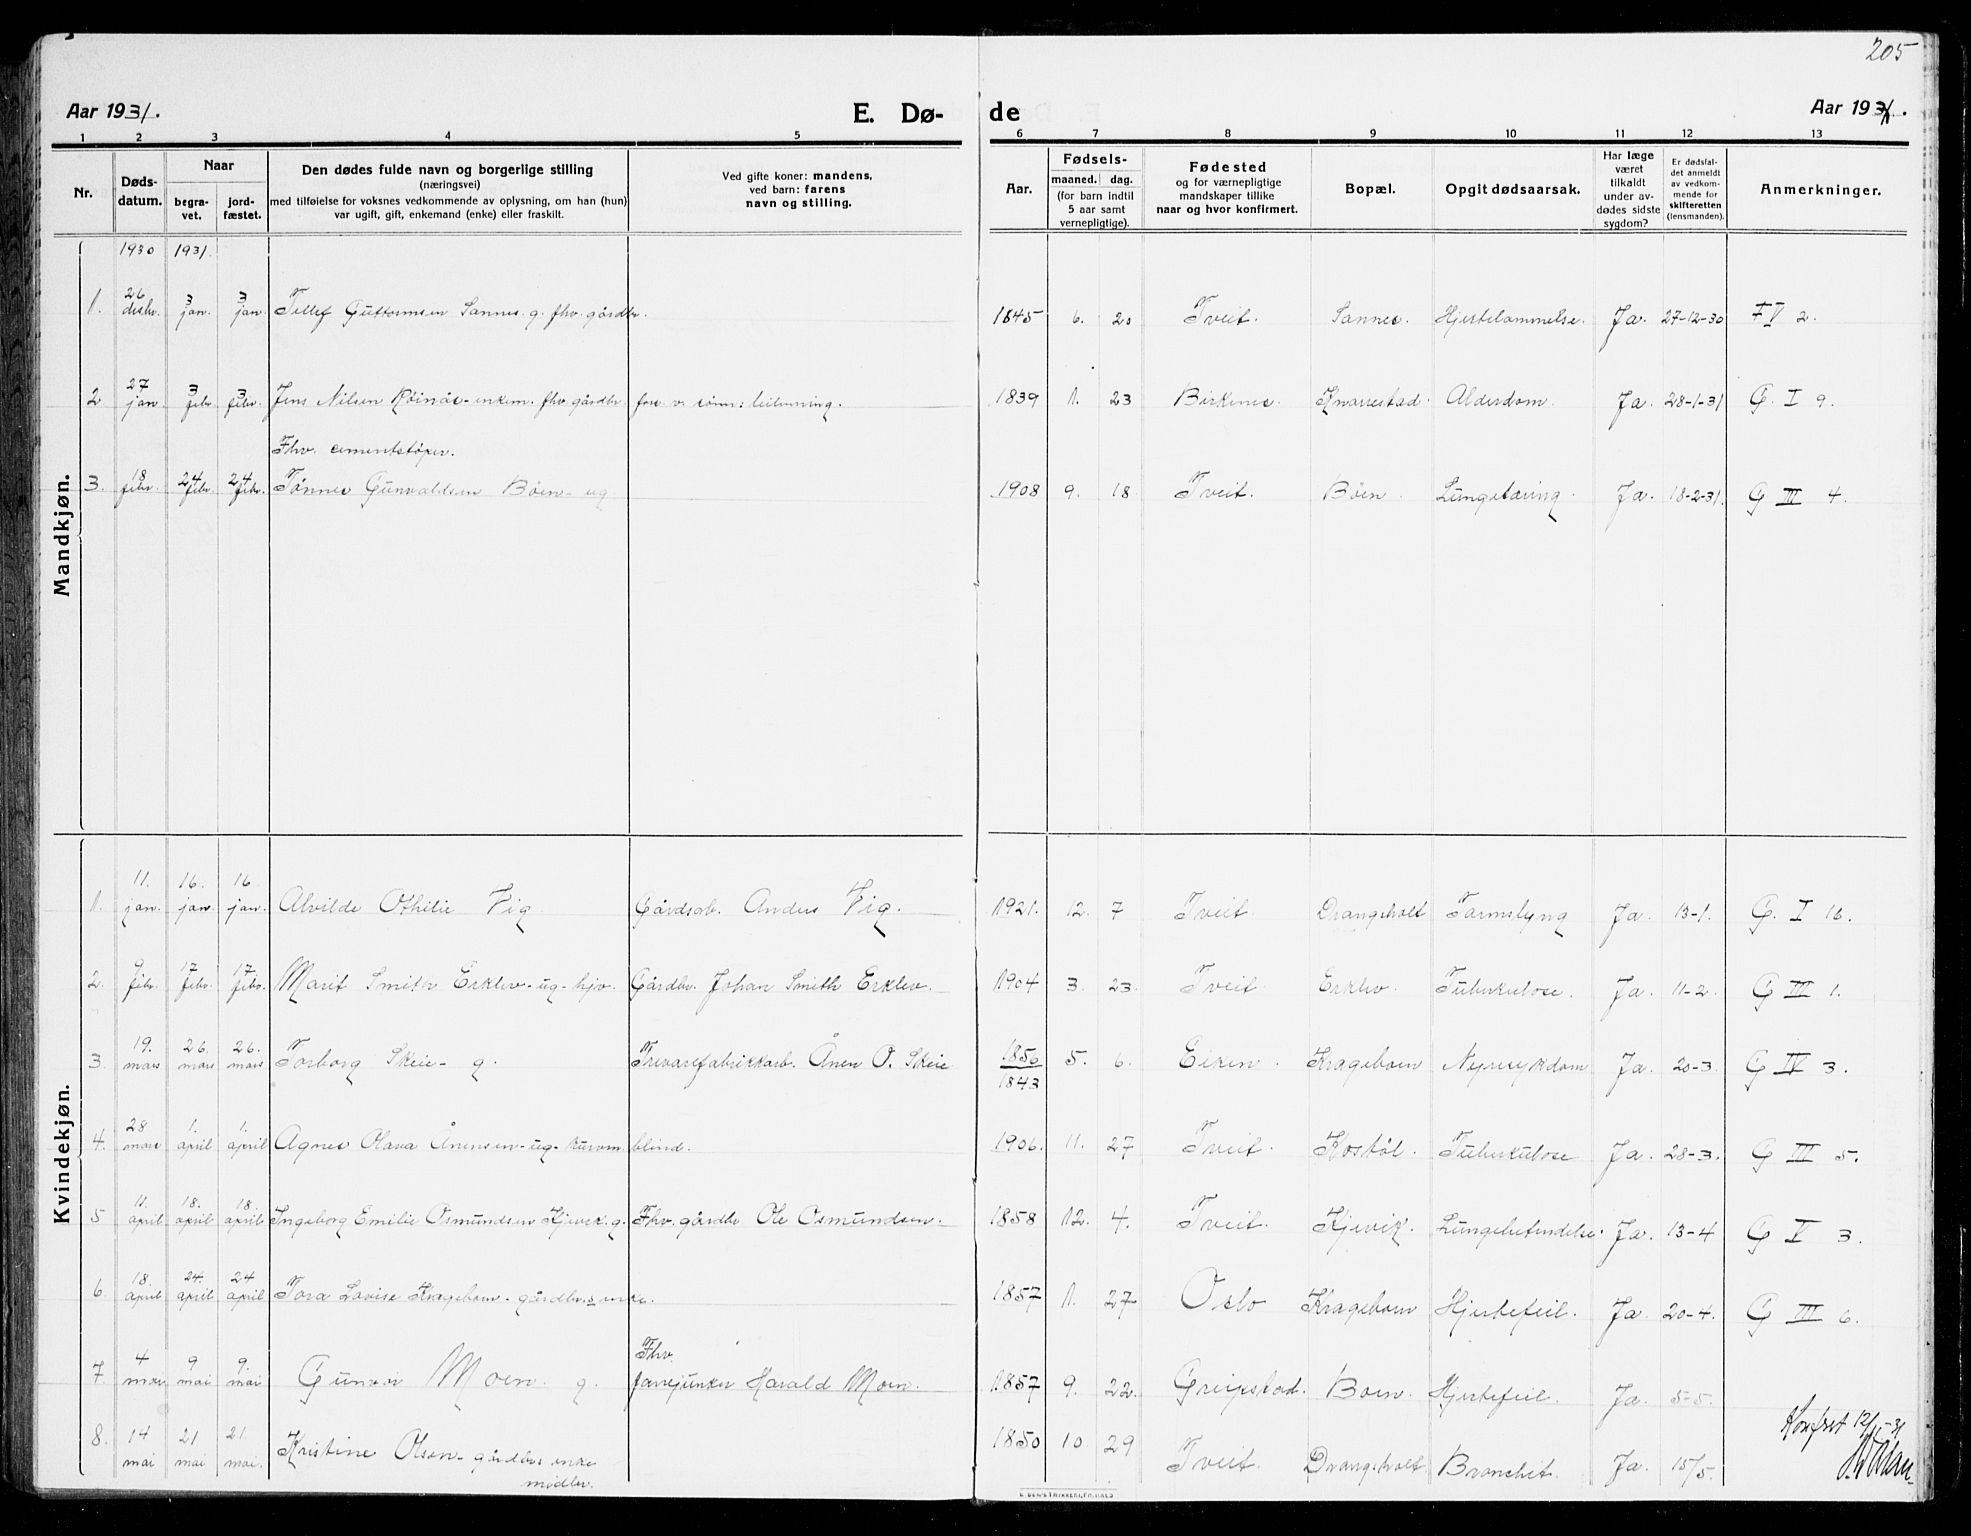 205
Aar 1931. E. Dø- de Aar 1931.
1 2 3 4 5 6 7 8 9 10 11 12 13
Nr. Døds-datum. Naar begra-vet. jord-fæstet. Den dødes fulde navn og borgerlige stilling (næringsvei) med tilføielse for voksnes vedkommende av oplysning, om han (hun) var ugift, gift, enkemand (enke) eller fraskilt. Ved gifte koner: mandens, ved barn: farens navn og stilling. Aar. Fødsels- maaned. dag. (for barn indtil 5 aar samt vernepligtige). Fødested og for værnepligtige mandskaper tillike naar og hvor konfirmert. Bopæl. Opgit dødsaarsak. Har læge været tilkaldt under av-dødes sidste sygdom? Er dødsfal-det anmeldt av vedkom-mende for skifteretten (lensmanden). Anmerkninger.
Mandkjøn.
1930 1931.
1. 26 desbr. 3 jan. 3 jan. Tellef Guttormsen Sannes. g. fhv. gårdbr. 1845 6. 20 Tveit. Sannes. Hjertelammelse. Ja. 27-12-30 F V 2.
2 27 jan 3 febr. 3 febr. Jens Nilsen Röinås - enkem. fhv. gårdbr. fors. v. sønn: leilending. 1839 1. 23 Birkenes. Knarrestad. Alderdom. Ja. 28-1-31 G. I 9.
Fhv. cementstöper.
3. 18 febr. 24 febr. 24 febr. Tönnes Gunvaldsen Böen - ug 1908 9. 18 Tveit. Böen. Lungetæring. Ja. 18-2-31. G III 4.
Kvindekjøn.
1. 11. jan. 16. jan. 16 jan. Alvilde Othilie Vig Gårdsarb. Anders Vig. 1921. 12. 7 Tveit. Drangsholt Tarmslyng Ja. 13-1. G. I 16.
2. 9 febr. 17 febr. 17. febr. Marit Smith Erklev - ug - hjv. Gårdbr. Johan Smith Erklev. 1904 3. 23. Tveit. Erklev. Tuberkulose. Ja. 11-2. G III 1.
3. 19. mars 26. mars 26. mars Torborg Skeie - g. Trevarefabrikkarb. Ånen O. Skeie 1856 / 1843 5. 6. Eiken. Krageboen Nyresykdom Ja. 20-3. G IV 3.
4. 28 mars 1. april 1. april Agnes Olava Ånensen - ug - kurvm. blind. 1906. 11. 27 Tveit. Kostöl. Tuberkulose Ja. 28-3. G III 5.
5 11. april 18. april 18. april Ingeborg Emilie Osmundsen Kjevik. g. Fhv. gårdbr Ole Osmundsen. 1858 12. 4. Tveit. Kjevik. Lungebetendelse. Ja. 13-4 G V 3.
6. 18. april 24. april 24 april Tora Lovise Krageboen - gårdbr.s enke. 1857 1. 27 Oslo Krageboen Hjertefeil. Ja. 20-4. G III 6.
Fhv.
7. 4 9 mai 9. mai Gunvor Moen. g. Harald Moen. 1857 9. 22. Greipstad. Boen. Hjertefeil. Ja. 5-5.
8. 14 mai 21 mai 21. mai. Kristine Olsen - gårdbrs enke 1850 10 29 Tveit. Drangsholt Bronchit. Ja. 15/5.